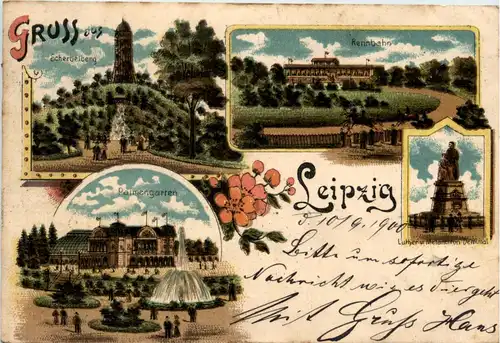 GRUSS aus
Scherbelberg
Rennbahn
Palmengarten
Luther u. Melanthon Denkmal
Leipzig
d 10/9. 1900
Bitte um sofortige
Nachricht wie es dir geht
Mit Gruß Hans